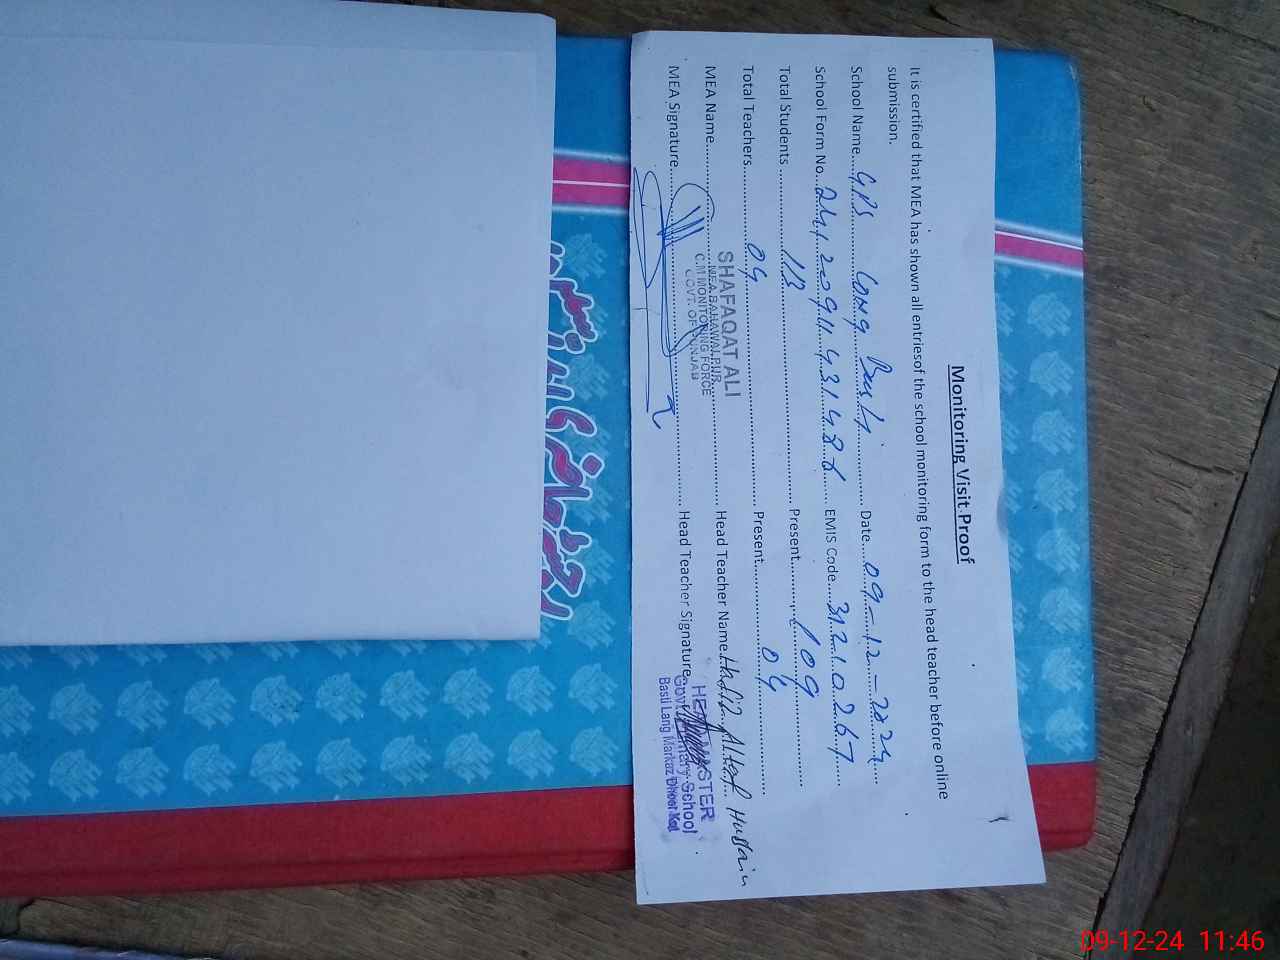 Monitoring Visit Proof
It is certified that MEA has shown all entriesof the school monitoring form to the head teacher before online
submission.
School Name....GPS Lang Basti........ Date....09-12-2024....
School Form No... EMIS Code....31210267....
Total Students ........113........ Present........109........
Total Teachers........04........ Present........04........
MEA Name................ Head Teacher Name.Hafiz Altaf Hussain
MEA Signature................ Head Teacher Signature
SHAFAQAT ALI
MEA BAHAWALPUR
C.M MONITORING FORCE
GOVT. OF PUNJAB
HEADMASTER
Govt. Primary School
Basti Lang Markaz Dhoor Kot
رجسٹر حاضری اساتذہ
09-12-24 11:46